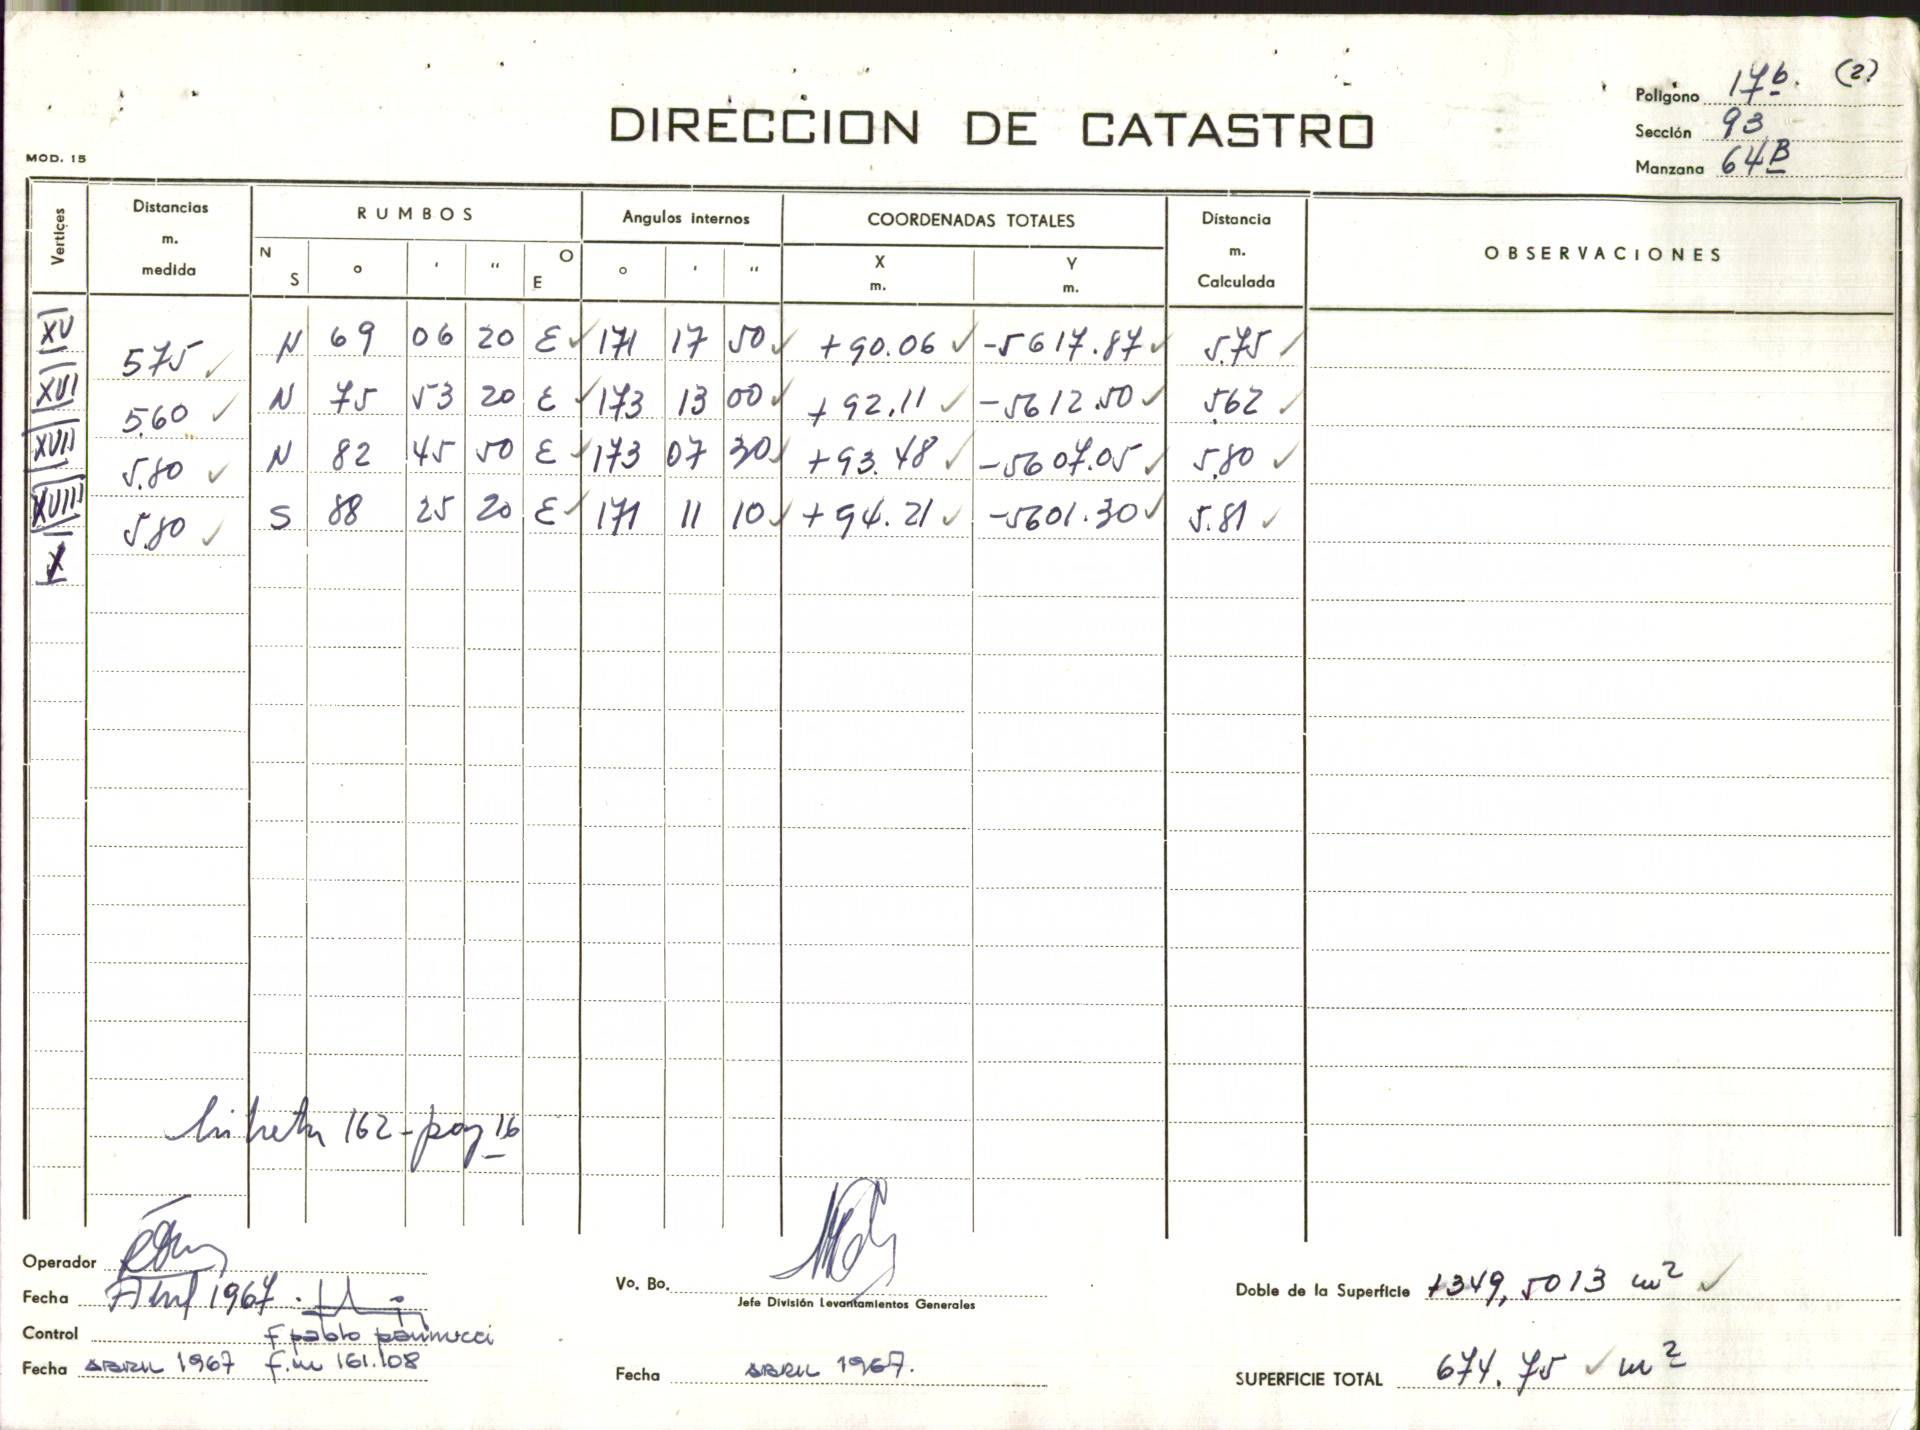 Polígono 17b. (2)
DIRECCION DE CATASTRO
Sección 93
MOD. 15
Manzana 64B
Vertices
Distancias m. medida
RUMBOS
Angulos internos
COORDENADAS TOTALES
Distancia m. Calculada
OBSERVACIONES
N S ° ' " O E
° ' "
X m.
Y m.
XV N 69 06 20 E 171 17 50 +90.06 -5617.87 5.75
575
XVI N 75 53 20 E 173 13 00 +92.11 -5612.50 5.62
5.60
XVII N 82 45 50 E 173 07 30 +93.48 -5607.05 5.80
5.80
XVIII S 88 25 20 E 171 11 10 +94.21 -5601.30 5.81
5.80
X
libreta 162 - pag 16
Operador
Fecha Abril 1967.
Control F. pablo pannucci
Fecha ABRIL 1967 f.m 161.108
Vo. Bo.
Jefe División Levantamientos Generales
Fecha ABRIL 1967.
Doble de la Superficie 1349,5013 m²
SUPERFICIE TOTAL 674.75 m²